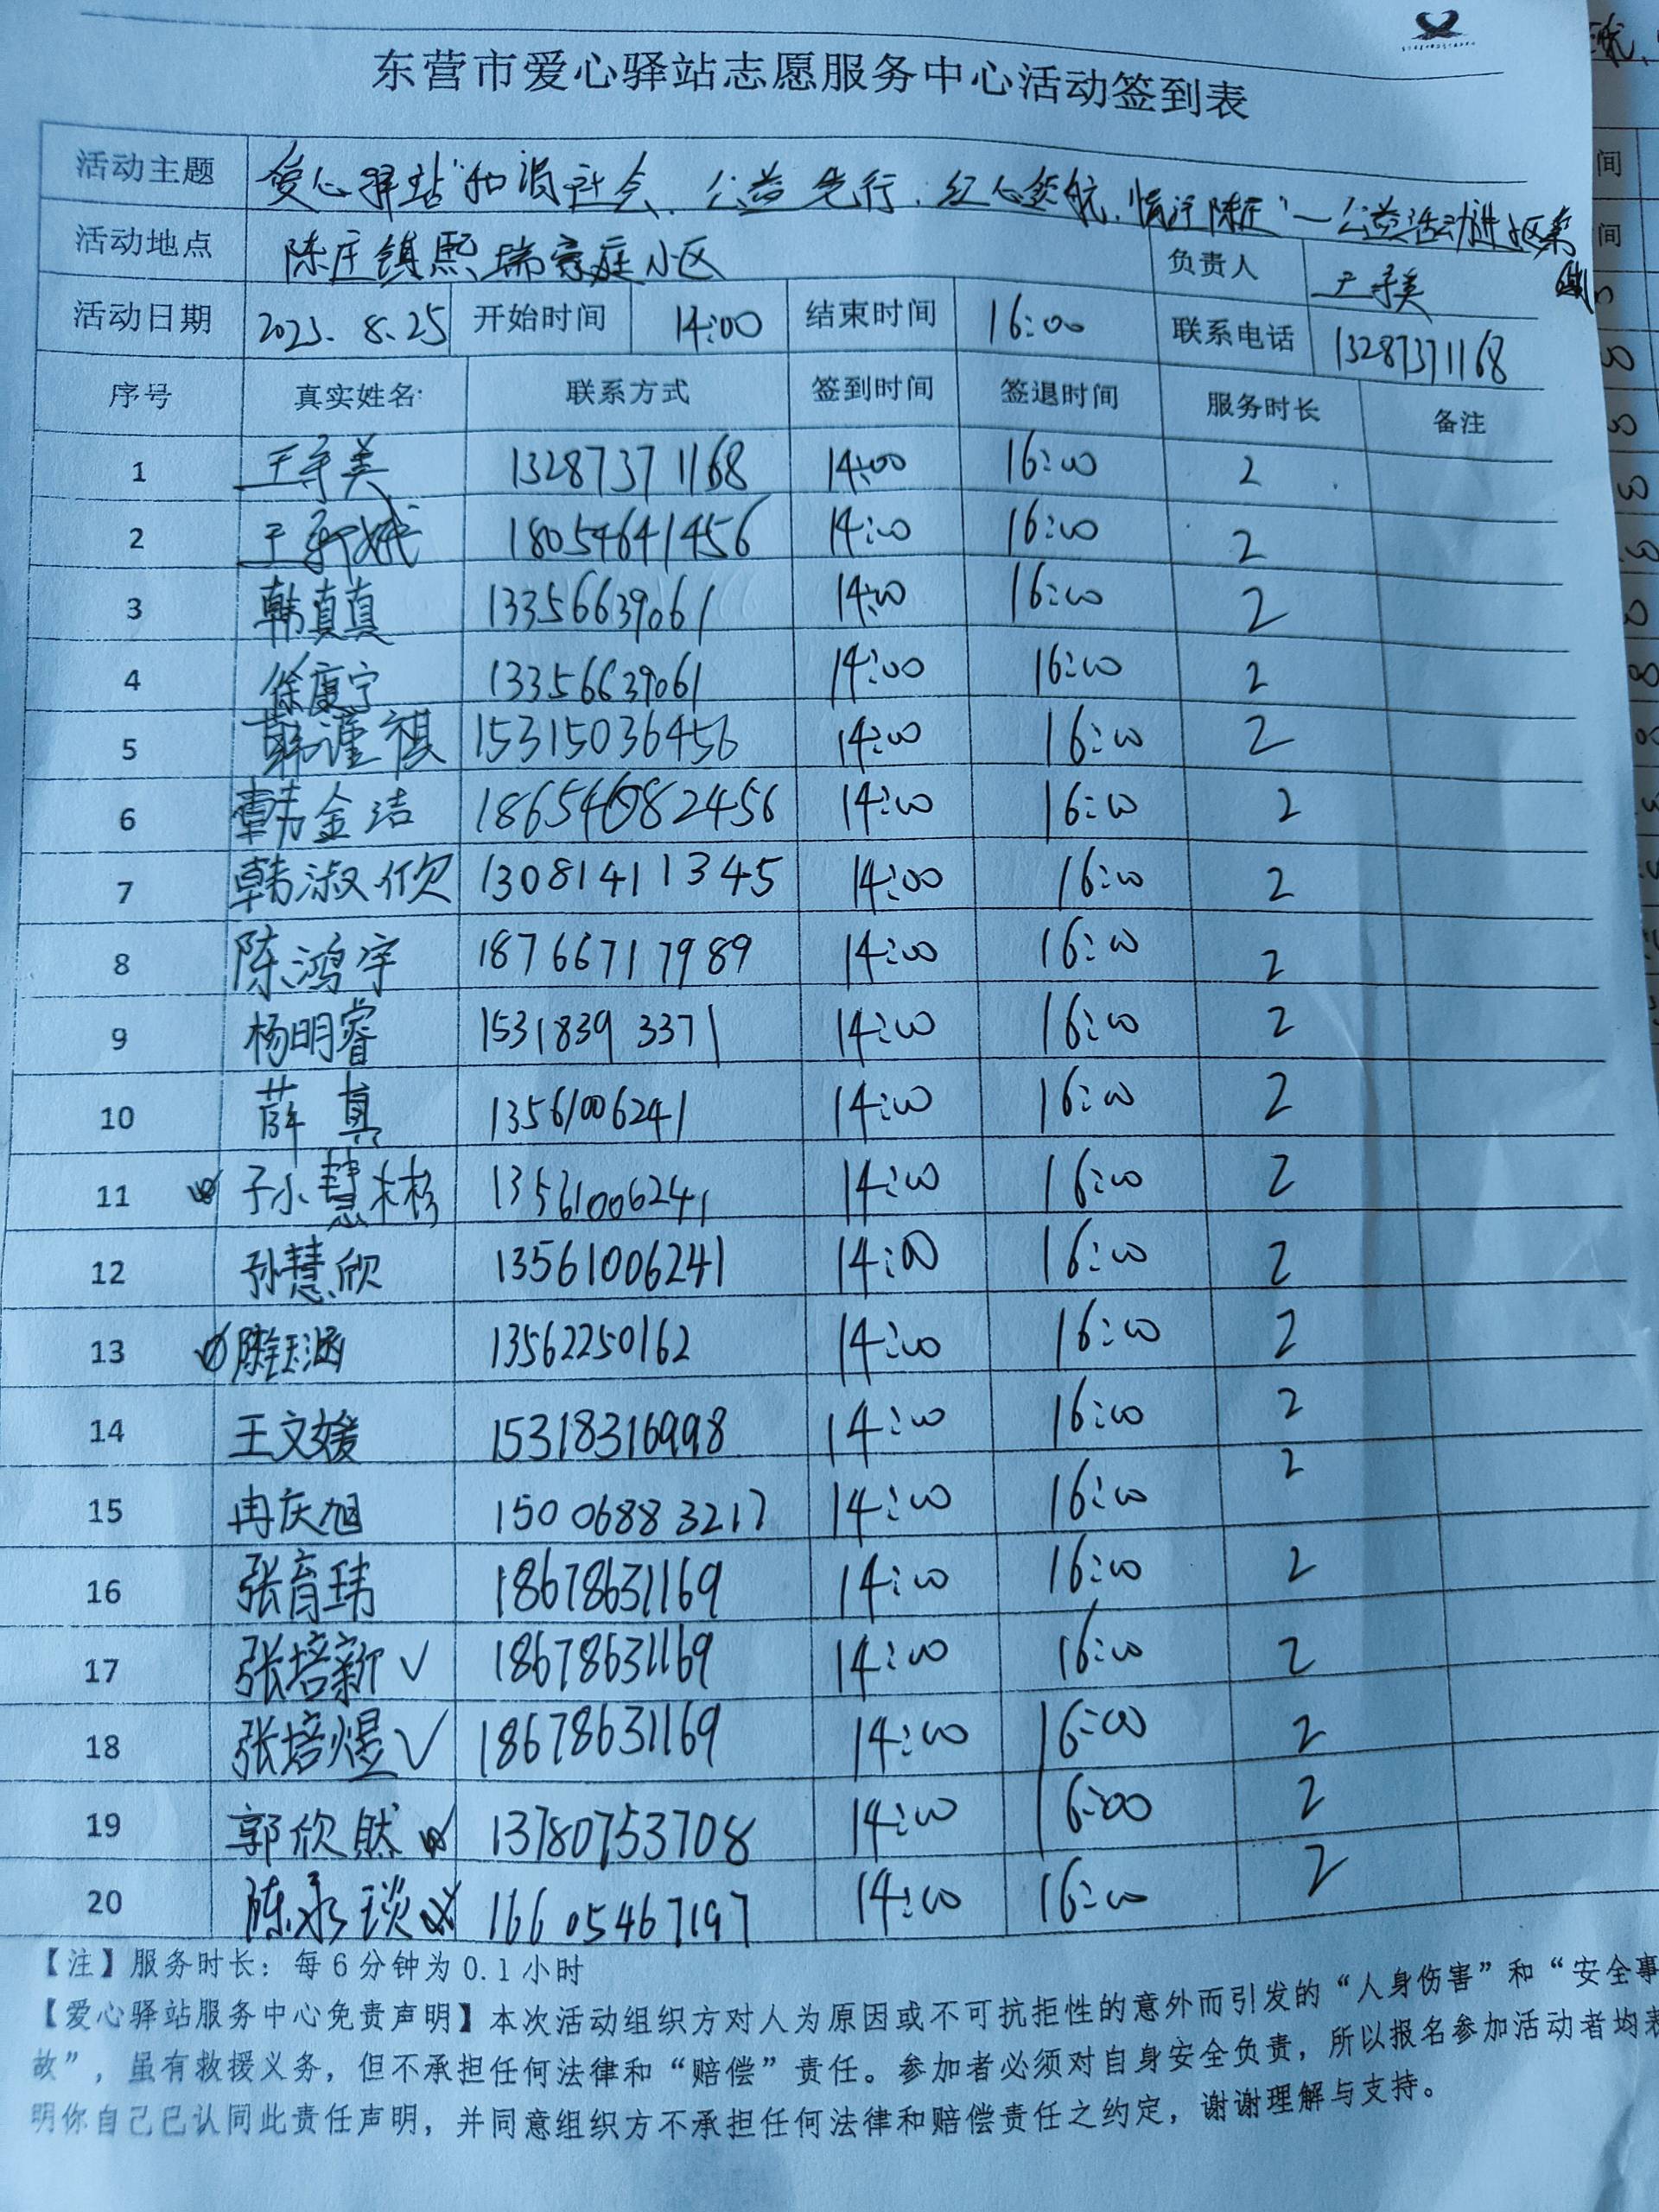 东营市爱心驿站志愿服务中心活动签到表
活动主题 爱心驿站"和谐社会、公益先行、红心领航、情浮陈庄"—公益活动进小区
活动地点 陈庄镇熙瑞豪庭小区 负责人 王守美
活动日期 2023.8.25 开始时间 14:00 结束时间 16:00 联系电话 13287371168
序号 真实姓名: 联系方式 签到时间 签退时间 服务时长 备注
1 王守美 13287371168 14:00 16:00 2
2 王新娥 18054641456 14:00 16:00 2
3 韩真真 13356639061 14:00 16:00 2
4 徐康宁 13356639061 14:00 16:00 2
5 韩谨祺 15315036456 14:00 16:00 2
6 韩金洁 18654682456 14:00 16:00 2
7 韩淑欣 13081411345 14:00 16:00 2
8 陈鸿宇 18766717989 14:00 16:00 2
9 杨明睿 15318393371 14:00 16:00 2
10 薛真 13561006241 14:00 16:00 2
11 孙慧彬 13561006241 14:00 16:00 2
12 孙慧欣 13561006241 14:00 16:00 2
13 陈钰涵 13562250162 14:00 16:00 2
14 王文媛 15318316998 14:00 16:00 2
15 冉庆旭 15006883217 14:00 16:00 2
16 张育玮 18678631169 14:00 16:00 2
17 张培新 ✓ 18678631169 14:00 16:00 2
18 张培煜 ✓ 18678631169 14:00 16:00 2
19 郭欣然 13780753708 14:00 16:00 2
20 陈永琰 16605467197 14:00 16:00 2
【注】服务时长：每6分钟为0.1小时
【爱心驿站服务中心免责声明】本次活动组织方对人为原因或不可抗拒性的意外而引发的“人身伤害”和“安全事
故”，虽有救援义务，但不承担任何法律和“赔偿”责任。参加者必须对自身安全负责，所以报名参加活动者均表
明你自己已认同此责任声明，并同意组织方不承担任何法律和赔偿责任之约定，谢谢理解与支持。